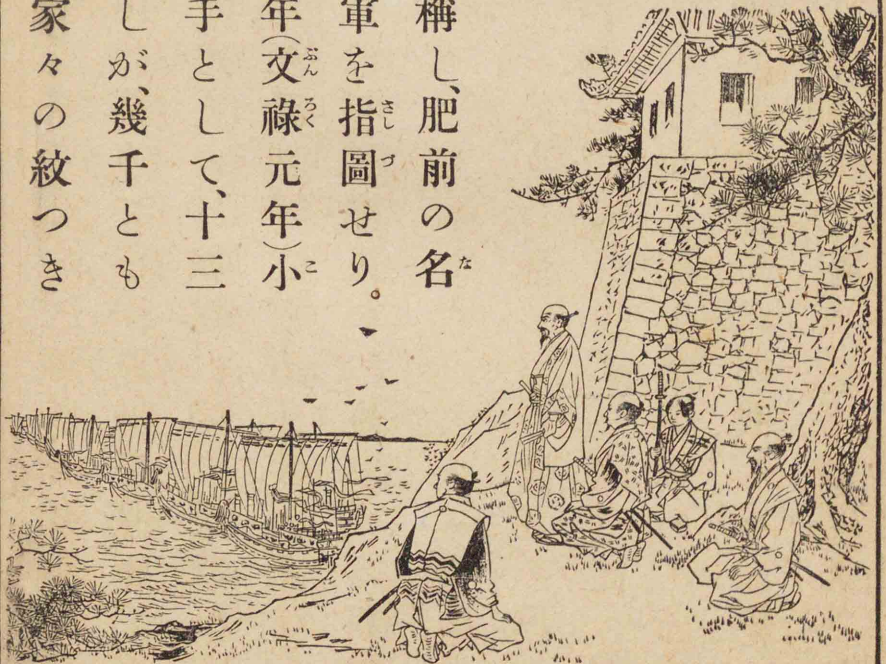 稱し、肥前の名
な
軍を指圖せり。
さしづ
年(文祿元年)小
ぶんろく こ
手として、十三
しが、幾千とも
家々の紋つき